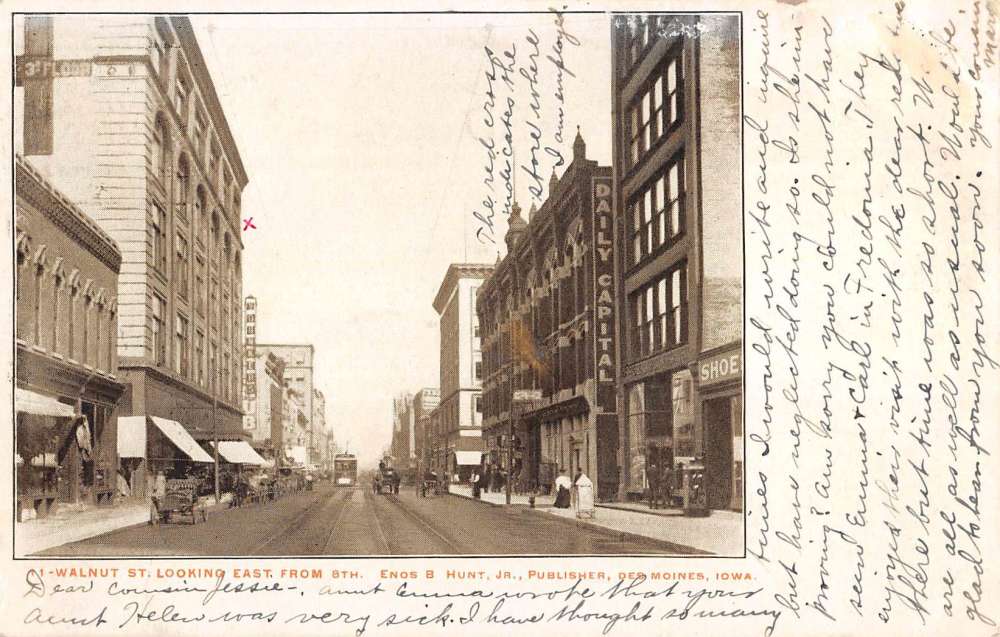 3RD FLOOR
DAILY CAPITAL
SHOE
The red cross
indicates the
store where
I am employed
X
11-WALNUT ST. LOOKING EAST, FROM 8TH. ENOS B HUNT, JR., PUBLISHER, DES MOINES, IOWA.
Dear cousin Jessie-, aunt Emma wrote that your
aunt Helen was very sick. I have thought so many
times I would write and inquire
but have neglected doing so. Is she im
proving? Am sorry you could not have
seen Emma & Carl in Fredonia. They
enjoyed their visit with the dear red
there but time was so short. We
are all as well as usual. Would be
glad to hear from you soon.
Your cousin